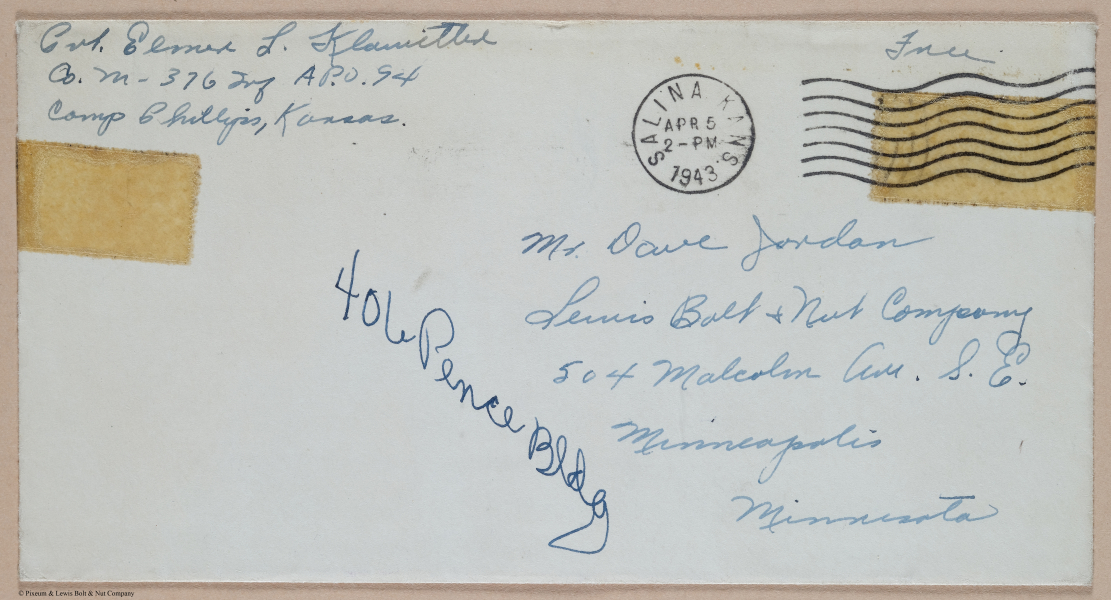 Pvt. Elmer L. Klawitter
Co. M - 376 Inf A.P.O. 94
Camp Phillips, Kansas.
Free
SALINA KANS
APR 5
2-PM
1943
Mr. Dave Jordan
Lewis Bolt & Nut Company
504 Malcolm Ave. S. E.
Minneapolis
Minnesota
406 Pence Bldg
© Pixeum & Lewis Bolt & Nut Company